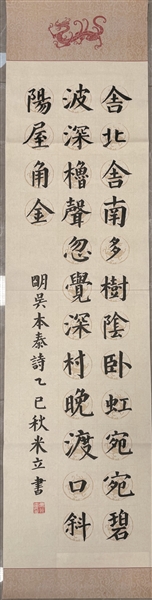 舍北舍南多樹陰卧虹宛宛碧
波深櫓聲忽覺深村晚渡口斜
陽屋角金
明吳本泰詩乙巳秋米立書